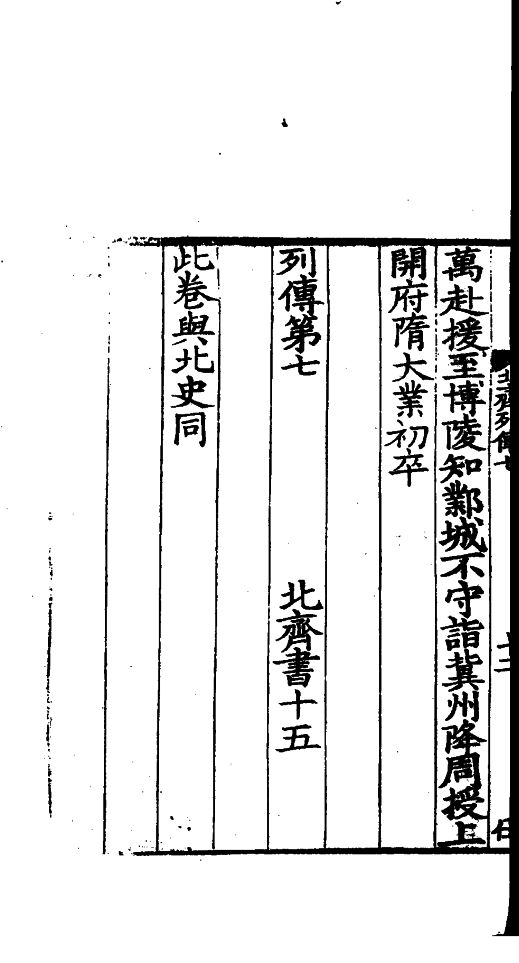 北齊列傳七 十三
萬赴援至博陵知鄴城不守詣冀州降周授上
開府隋大業初卒
列傳第七 北齊書十五
此卷與北史同